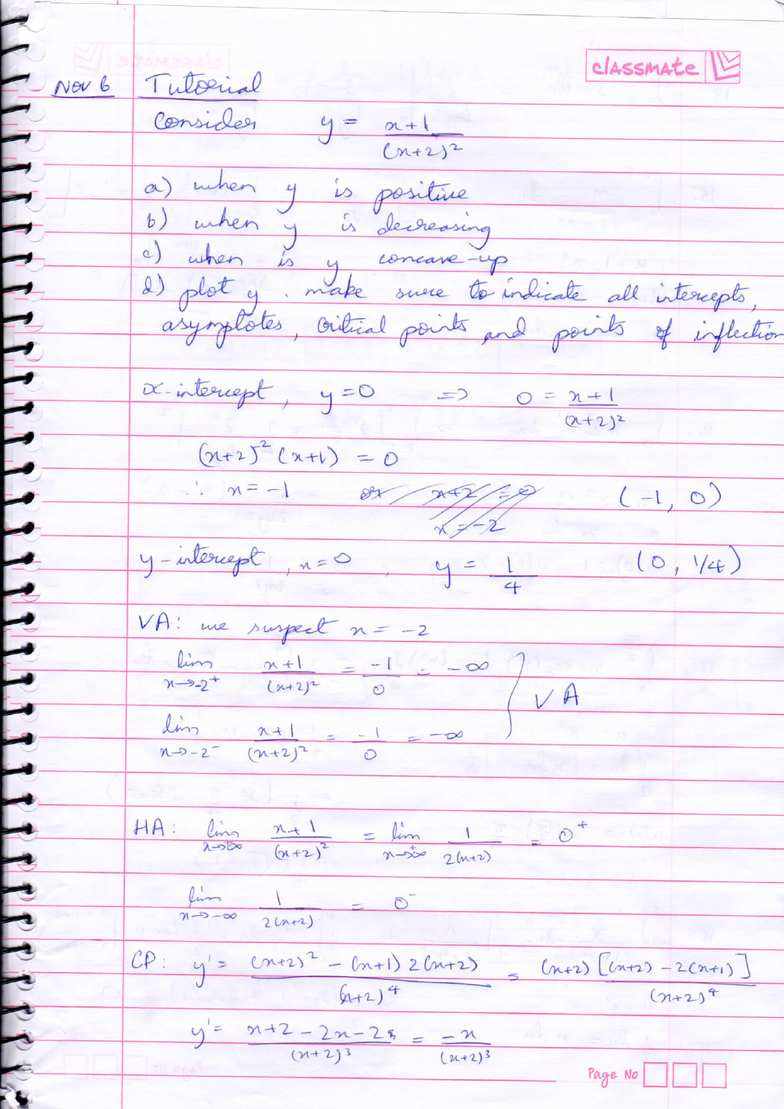 classmate
Nov 6 Tutorial
Consider y = x+1 / (x+2)²
a) when y is positive
b) when y is decreasing
c) when is y concave-up
d) plot y. make sure to indicate all intercepts,
asymptotes, critical points and points of inflection
x-intercept, y=0 => 0 = x+1 / (x+2)²
(x+2)² (x+1) = 0
∴ x = -1 or x+2 = 0 (-1, 0)
x = -2
y-intercept, x=0, y = 1/4 (0, 1/4)
VA: we suspect x = -2
lim x→-2⁺ x+1 / (x+2)² = -1/0 = -∞
VA
lim x→-2⁻ x+1 / (x+2)² = -1/0 = -∞
HA: lim x→∞ x+1 / (x+2)² = lim x→∞ 1 / 2(x+2) = 0⁺
lim x→-∞ 1 / 2(x+2) = 0⁻
CP: y' = (x+2)² - (x+1) 2(x+2) / (x+2)⁴ = (x+2) [(x+2) - 2(x+1)] / (x+2)⁴
y' = x+2-2x-2 / (x+2)³ = -x / (x+2)³
Page No